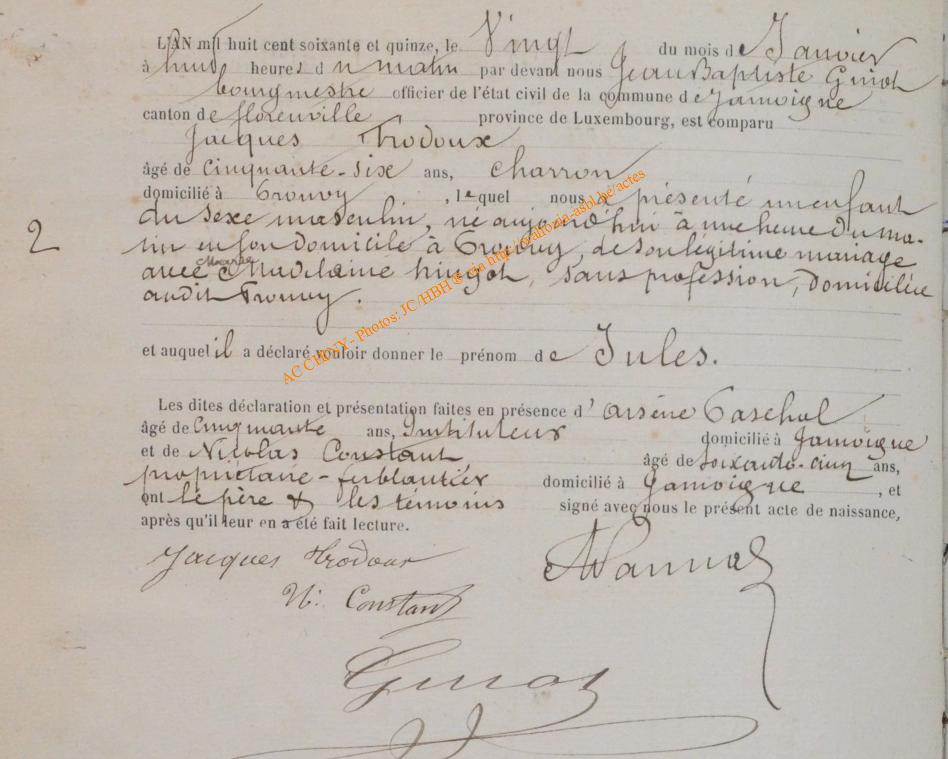 L'AN mil huit cent soixante et quinze, le Vingt du mois de Janvier
à huit heures du matin par devant nous Jean Baptiste Guiot
bourgmestre officier de l'état civil de la commune de Jamoigne
canton de florenville province de Luxembourg, est comparu
Jacques Hrodoux
âgé de cinquante-six ans, charron
domicilié à Prouvy, lequel nous a présenté un enfant
du sexe masculin, né aujourd'hui à une heure du ma-
2
tin en son domicile à Prouvy, de son légitime mariage
avec Marie Madelaine hugot, sans profession, domiciliée
audit Prouvy.
et auquel il a déclaré vouloir donner le prénom de Jules.
Les dites déclaration et présentation faites en présence d'arsène Paschal
âgé de Cinquante ans, Instituteur domicilié à Jamoigne
et de Nicolas Constant âgé de soixante-cinq ans,
propriétaire-ferblantier domicilié à Jamoigne, et
ont le père & les témoins signé avec nous le présent acte de naissance,
après qu'il leur en a été fait lecture.
Jacques Hrodoux
N. Constant
Guiot
AC CHINY - Photos: JC/HBH © via